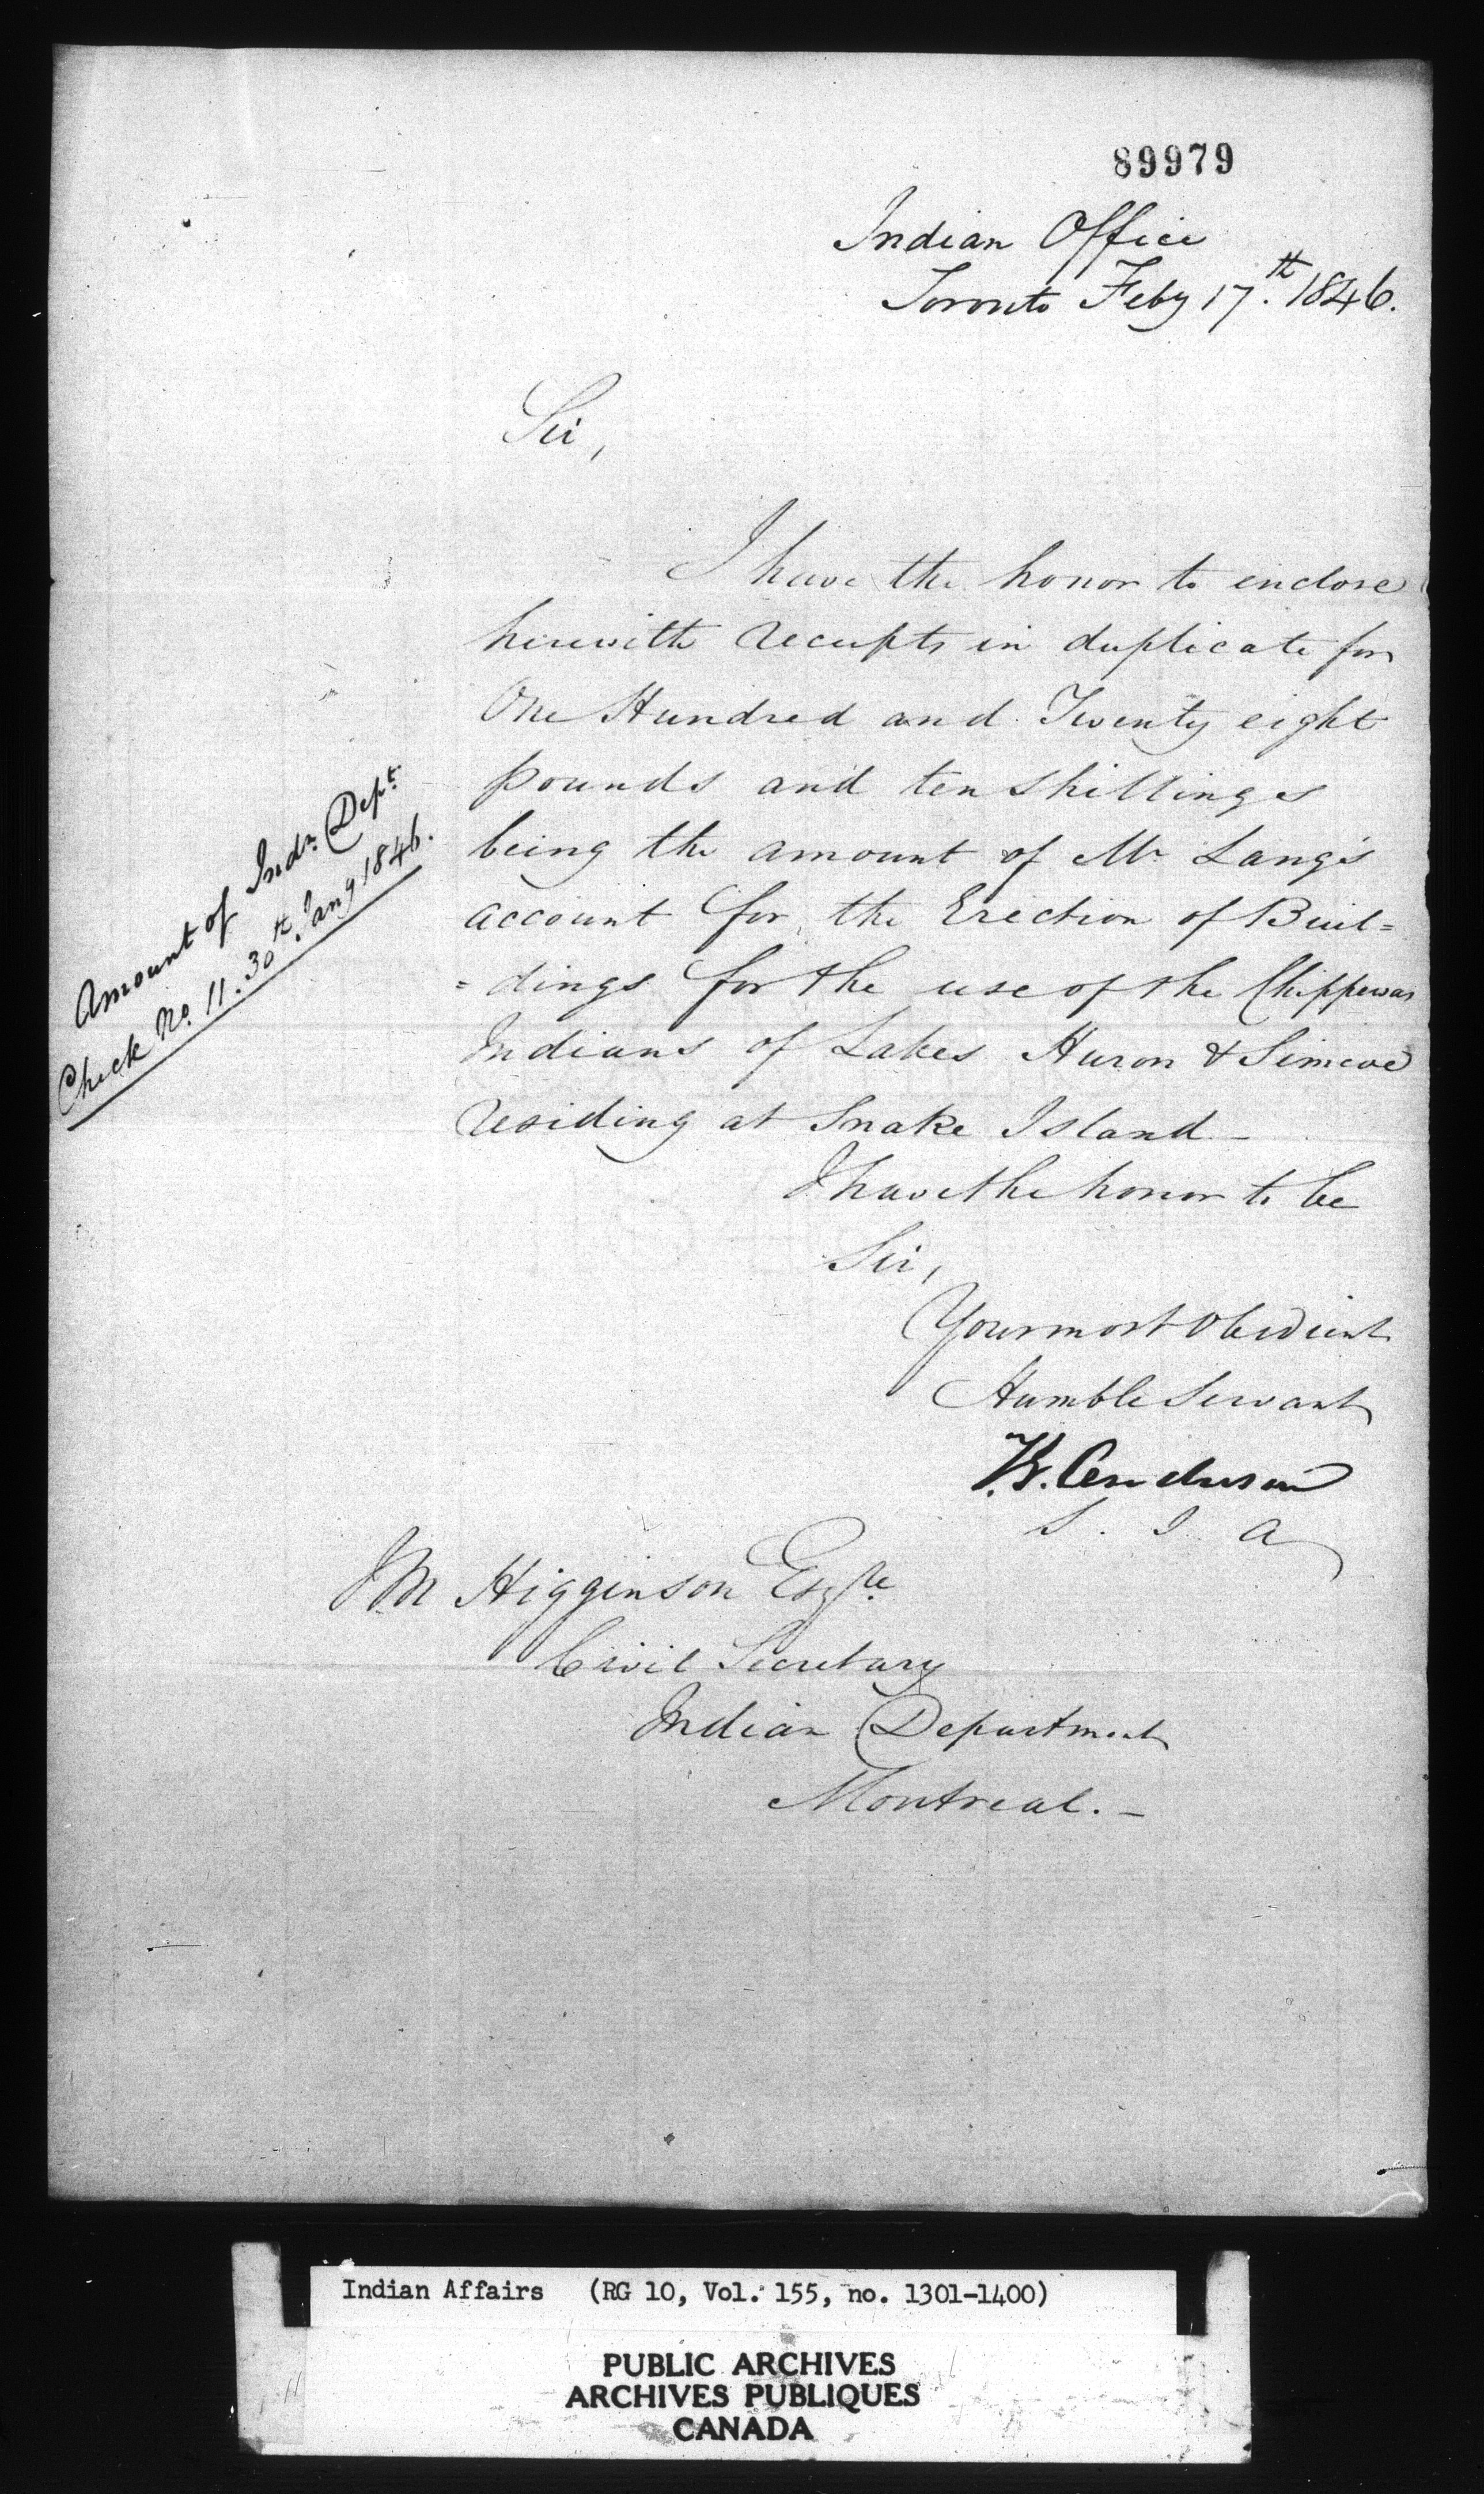 89979
Indian Office
Toronto Feby 17th. 1846.
Sir,
I have the honor to enclose
herewith receipts in duplicate for
One Hundred and Twenty eight
pounds and ten shillings
being the amount of Mr Lang's
account for the Erection of Buil=
=dings for the use of the Chippewas
Indians of Lakes Huron & Simcoe
residing at Snake Island _
I have the honor to be
Sir,
Your most Obedient
Humble Servant
Amount of Indn. Dept.
Check No. 11. 30th. Jany 1846.
Anderson
S. I. A
JM Higginson Esqre.
Civil Secretary
Indian Department
Montreal. _
Indian Affairs (RG 10, Vol. 155, no. 1301-1400)
PUBLIC ARCHIVES
ARCHIVES PUBLIQUES
CANADA